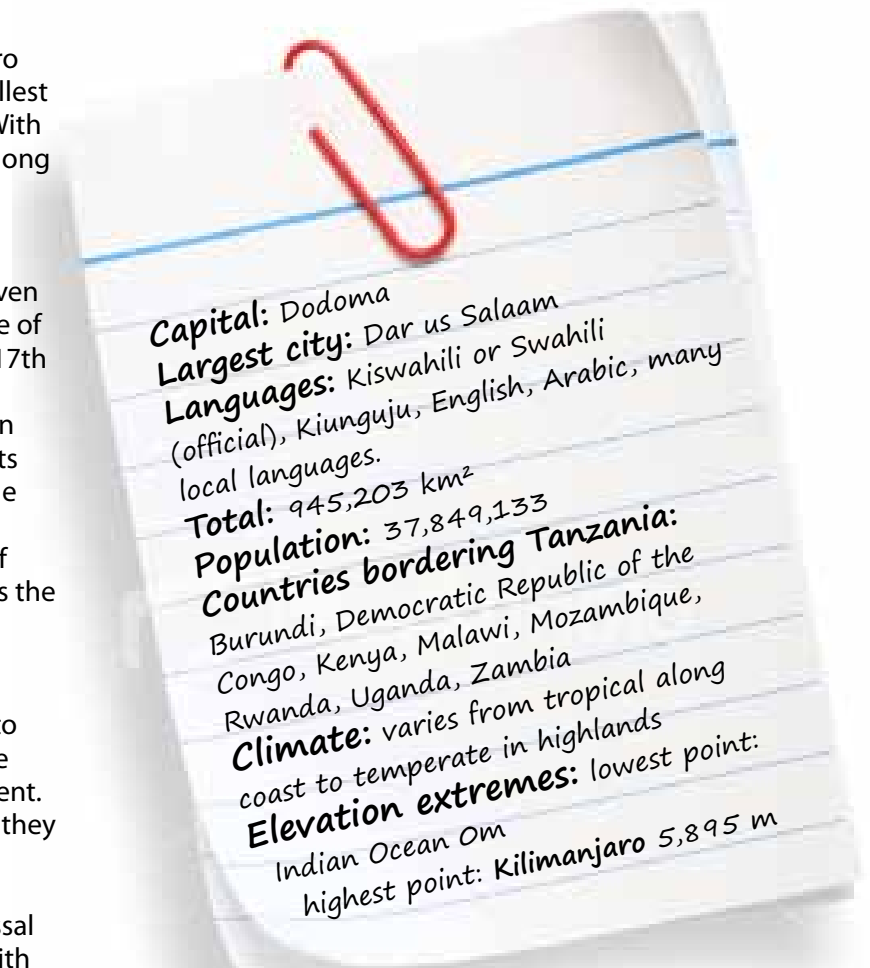 ro
llest
With
ong
ven
e of
17th
n
ts
e
f
s the
to
e
ent.
they
ssal
ith
Capital: Dodoma
Largest city: Dar us Salaam
Languages: Kiswahili or Swahili
(official), Kiunguju, English, Arabic, many
local languages.
Total: 945,203 km²
Population: 37,849,133
Countries bordering Tanzania:
Burundi, Democratic Republic of the
Congo, Kenya, Malawi, Mozambique,
Rwanda, Uganda, Zambia
Climate: varies from tropical along
coast to temperate in highlands
Elevation extremes: lowest point:
Indian Ocean Om
highest point: Kilimanjaro 5,895 m